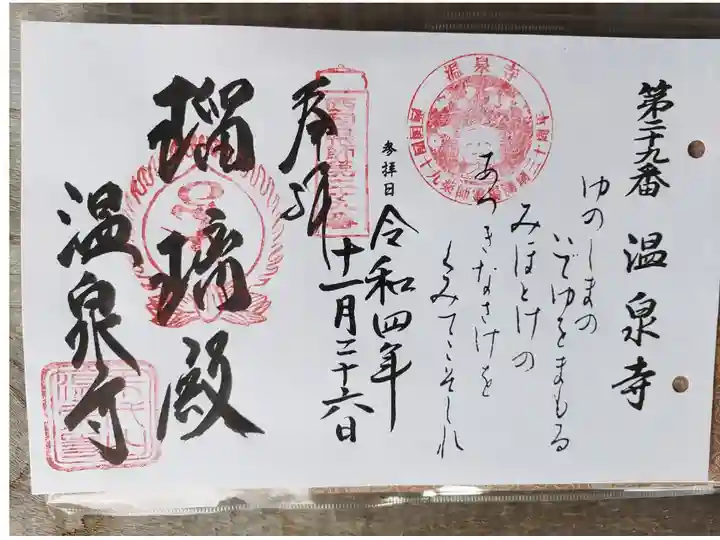 第二十九番 温泉寺
ゆのしまの
いでゆをまもる
みほとけの
あつきなさけを
くみてこそしれ
温泉寺
参拝日
令和四年
十一月二十六日
奉拝
瑠璃殿
温泉寺